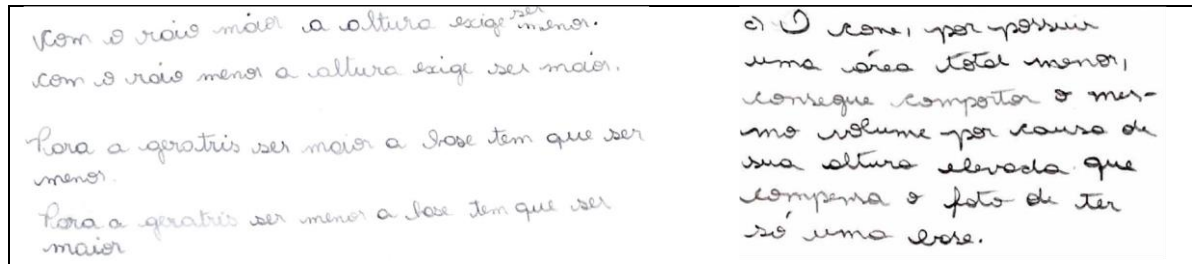 com o raio maior a altura exige ser menor.
com o raio menor a altura exige ser maior.
Para a geratris ser maior a base tem que ser
menor.
Para a geratris ser menor a base tem que ser
maior
c) O cone, por possuir
uma área total menor,
consegue comportar o mes-
mo volume por causa de
sua altura elevada que
compensa o fato de ter
só uma base.